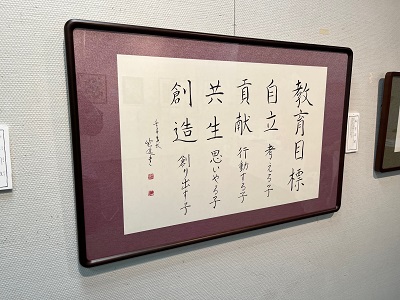 教育目標
自立 考える子
貢献 行動する子
共生 思いやる子
創造 創り出す子